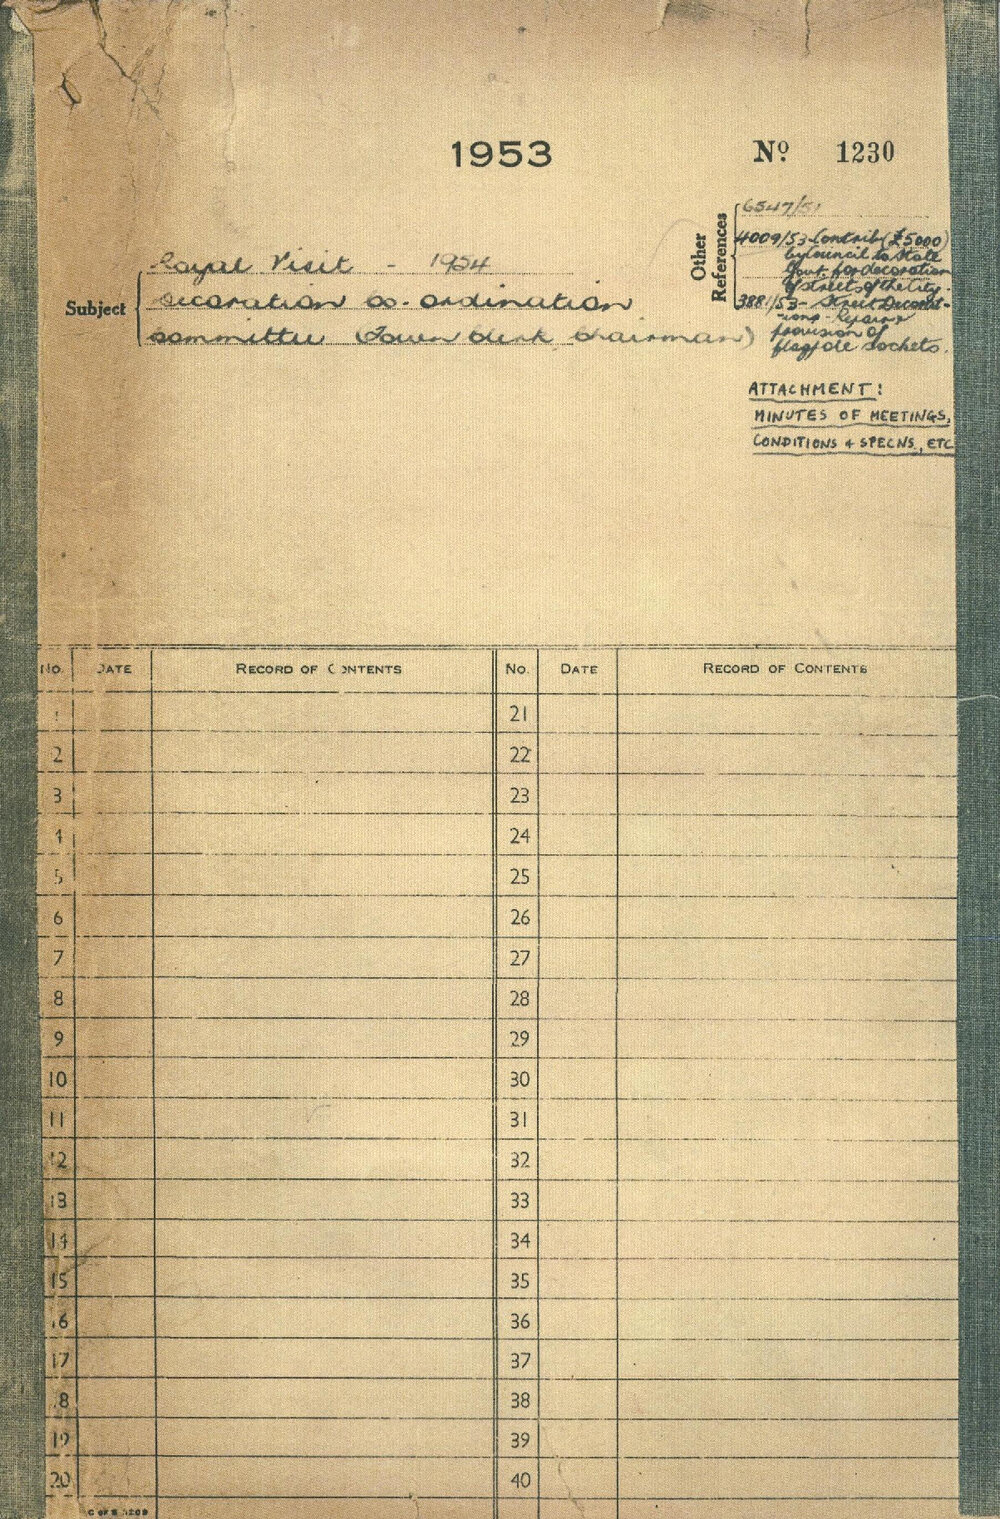 1953
Nº 1230
Other
References
6547/51
4009/53 - Contrib (£5000)
by Council to State
Govt. for decoration
of streets of the City.
3881/53 - Street Decorat-
-ions - Repairs &
provision of
flagpole sockets.
Subject
Royal Visit - 1954
Decoration Co-ordination
Committee (Town Clerk Chairman)
ATTACHMENT:
MINUTES OF MEETINGS,
CONDITIONS & SPECNS, ETC
No. DATE RECORD OF CONTENTS No. DATE RECORD OF CONTENTS
1 21
2 22
3 23
4 24
5 25
6 26
7 27
8 28
9 29
10 30
11 31
12 32
13 33
14 34
15 35
16 36
17 37
18 38
19 39
20 40